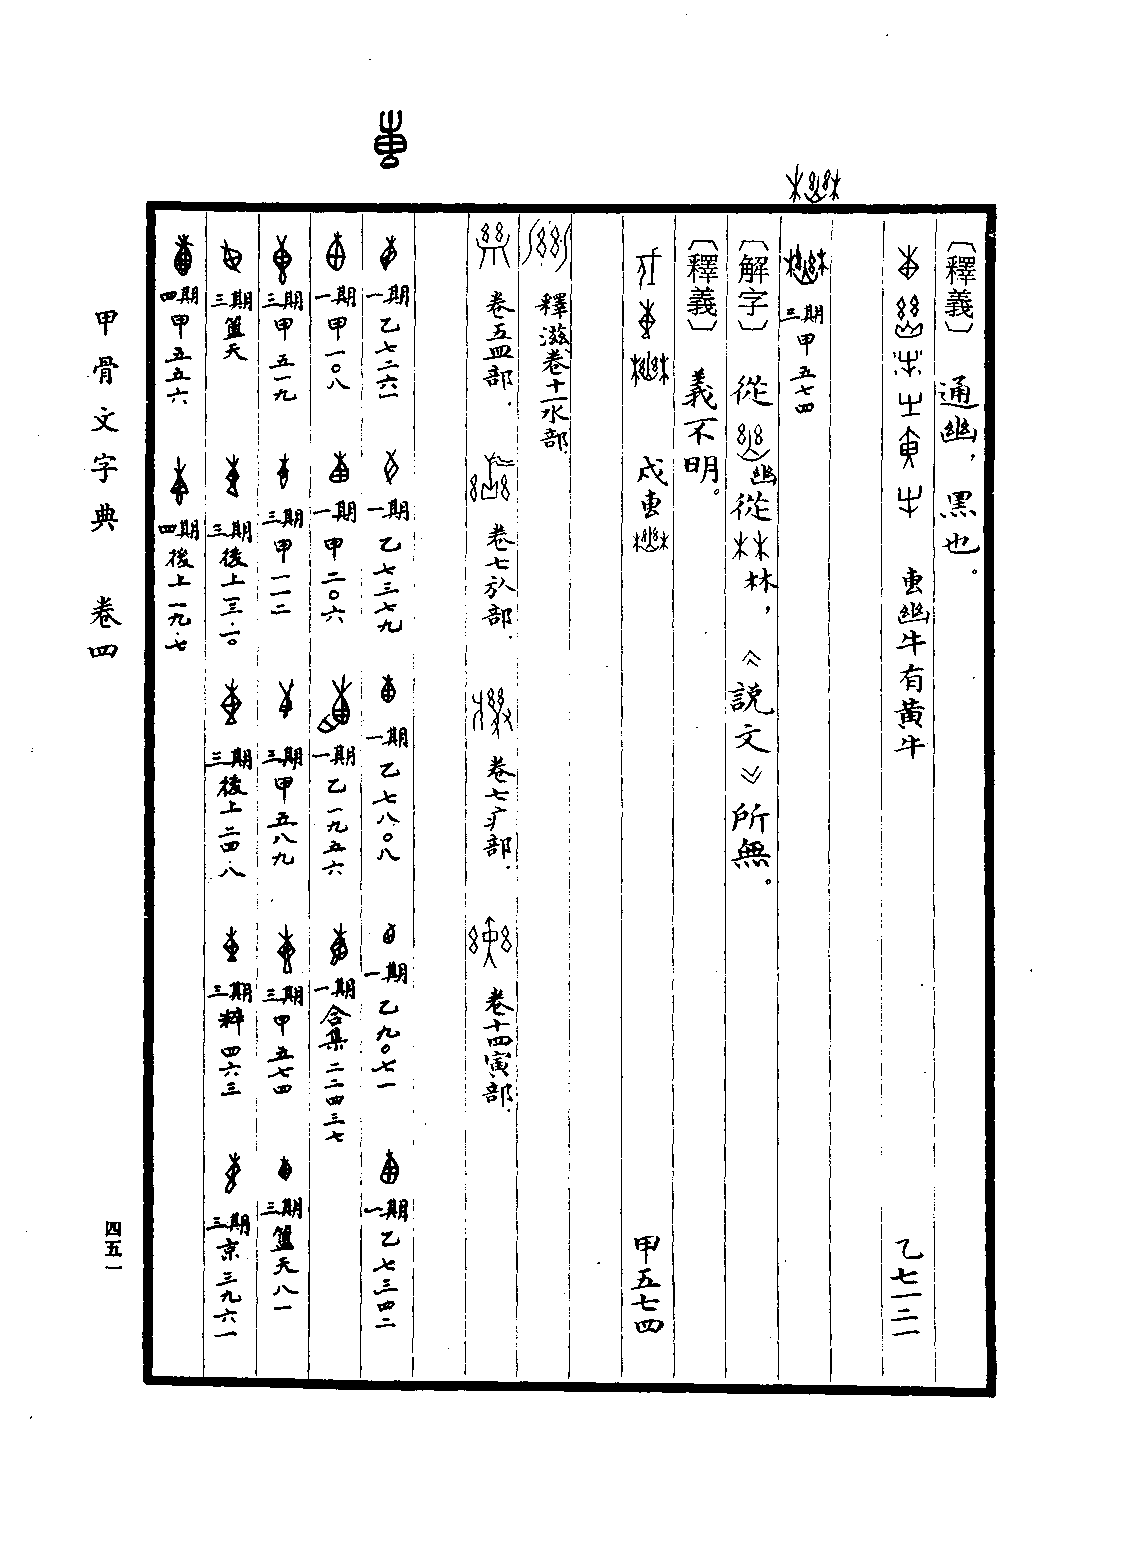 〔釋義〕 通幽，黑也。
叀幽牛有黄牛 乙七一二一
三期 甲五七四
〔解字〕 從幽從林，《説文》所無。
〔釋義〕 義不明。
戍叀 甲五七四
釋滋卷十一水部
卷五皿部． 卷七㫃部． 卷七疒部． 卷十四寅部．
一期 乙七二六一 一期 乙七三七九 一期 乙七八〇八 一期 乙九〇七一 一期 乙七三四二
一期 甲一〇八 一期 甲二〇六 一期 乙一九五六 一期 合集二二四三七
三期 甲五一九 三期 甲一一二 三期 甲五八九 三期 甲五七四 三期 簠天八一
三期 簠天 三期 後上一三·一〇 三期 後上二四·八 三期 粹四六三 三期 京三九六一
四期 甲五五六 四期 後上一九·七
甲骨文字典 卷四
四五一